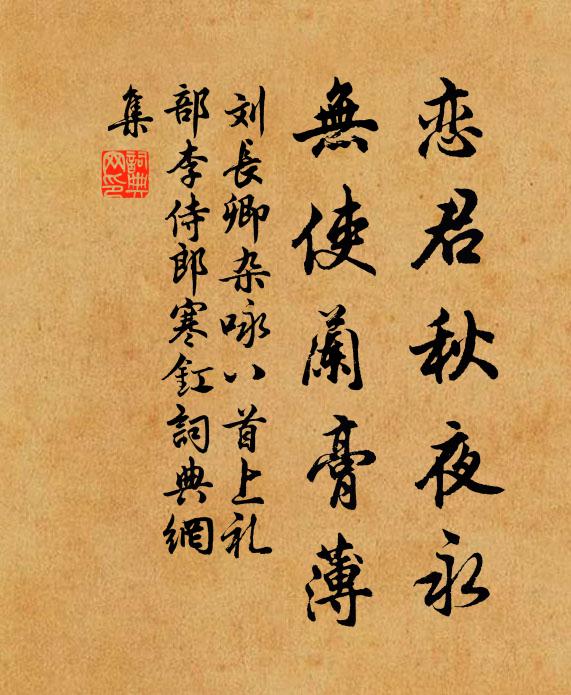 恋君秋夜永
無使蘭膏薄
刘長卿杂咏八首上礼
部李侍郎寒釭詞典網
集
詞典网印